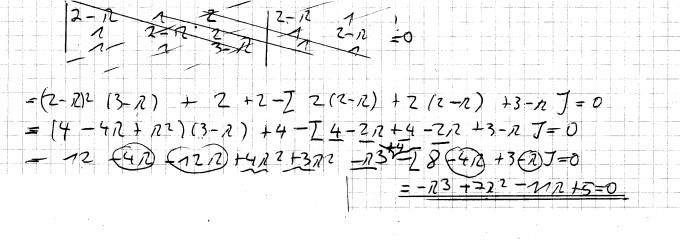 | 2-λ 1 2 | 2-λ 1 !
| 1 2-λ 2 | 1 2-λ =0
| 1 1 3-λ | 1 1
=(2-λ)² (3-λ) + 2 +2-[ 2(2-λ) +2(2-λ) +3-λ ]=0
=(4-4λ+λ²)(3-λ) +4 -[4-2λ+4-2λ +3-λ]=0
= 12 -4λ -12λ +4λ²+3λ² -λ³ +4 -[8-4λ+3-λ]=0
=-λ³+7λ²-11λ+5=0